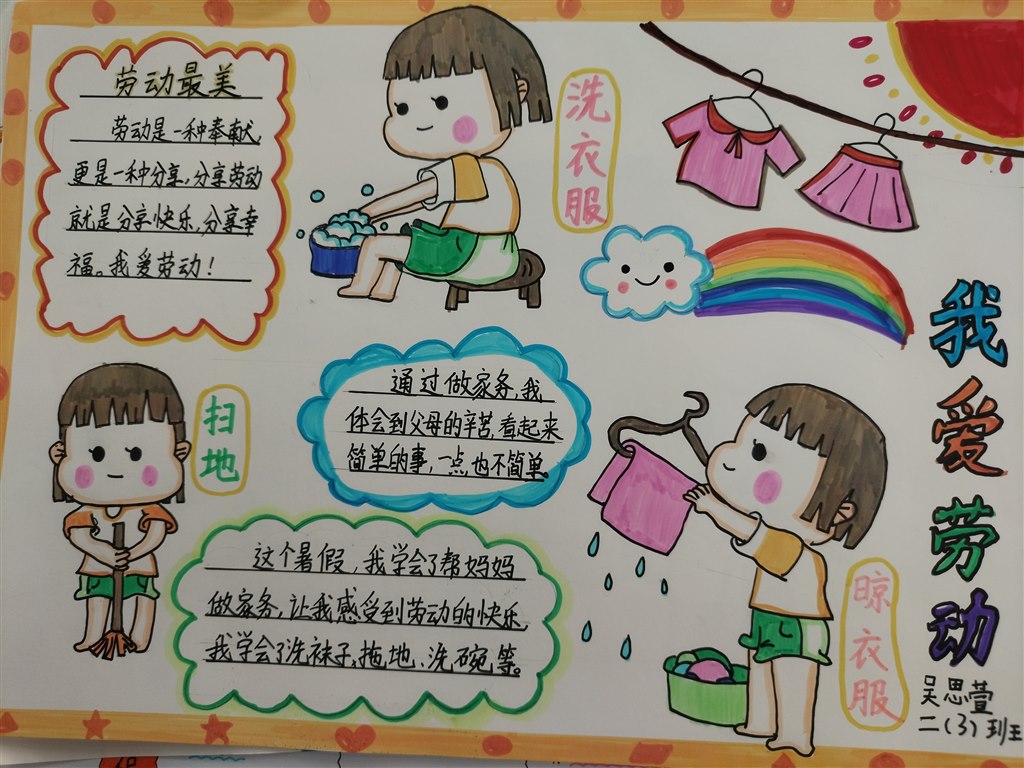 劳动最美
劳动是一种奉献
更是一种分享,分享劳动
就是分享快乐,分享幸
福。我爱劳动!
洗衣服
扫地
通过做家务,我
体会到父母的辛苦,看起来
简单的事,一点也不简单。
这个暑假,我学会了帮妈妈
做家务,让我感受到劳动的快乐,
我学会了洗袜子,拖地,洗碗等。
晾衣服
我爱劳动
吴思萱
二(3)班